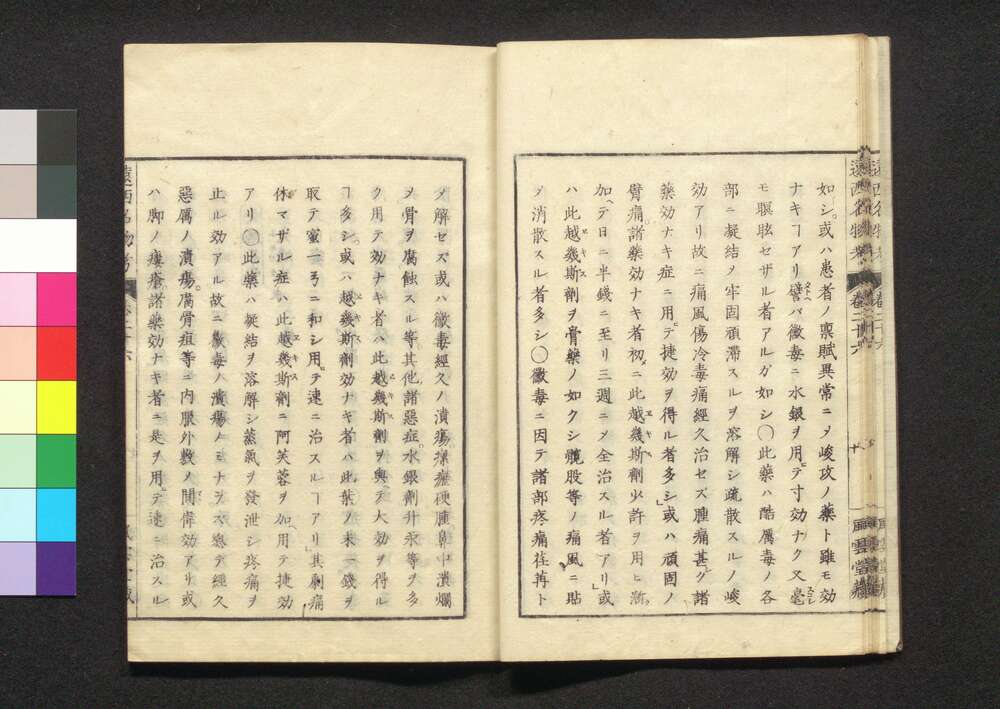 如シ。或ハ患者ノ禀賦異常ニ〆峻攻ノ薬ト雖モ効
ナキヿアリ譬バ黴毒ニ水銀ヲ用テ寸効ナク又毫
モ瞑眩セザル者アルガ如シ◯此薬ハ酷厲毒ノ各
部ニ凝結〆牢固頑滞スルヲ溶解シ疏散スルノ峻
効アリ故ニ痛風傷冷毒痛經久治セズ腫痛甚〆諸
藥効ナキ症ニ用テ捷効ヲ得ル者多シ」或ハ頑固ノ
臂痛諸藥効ナキ者初ニ此越幾斯劑少許ヲ用ヒ漸
加ヘテ日ニ半錢ニ至リ三週ニ〆全治スル者アリ」或
ハ此越幾斯劑ヲ膏藥ノ如クシ髖股等ノ痛風ニ貼
〆消散スル者多シ◯黴毒ニ因テ諸部疼痛荏苒ト
〆解セズ或ハ黴毒經久ノ潰瘍。瘰癧硬腫。鼻中潰爛
〆骨ヲ腐蝕スル等其他諸惡症。水銀劑升汞等ヲ多
ク用テ効ナキ者ハ此越幾斯劑ヲ與テ大効ヲ得ル
ヿ多シ。或ハ越幾斯劑効ナキ者ハ此葉ノ末一錢ヲ
取テ蜜一弓ニ和シ用テ速ニ治スルヿアリ」其劇痛
休マザル症ハ此越幾斯劑ニ阿芙蓉ヲ加ヘ用テ捷効
アリ◯此藥ハ凝結ヲ溶解シ蒸氣ヲ發泄シ疼痛ヲ
止ル効アル故ニ黴毒ノ潰瘍ノミナラズ總テ經久
惡厲ノ潰瘍。腐骨疽等ニ内服外敷ノ間偉効アリ或
ハ脚ノ瘻瘡諸藥効ナキ者ニ是ヲ用テ速ニ治スル
遠西名物考
卷二十六
風雲堂藏